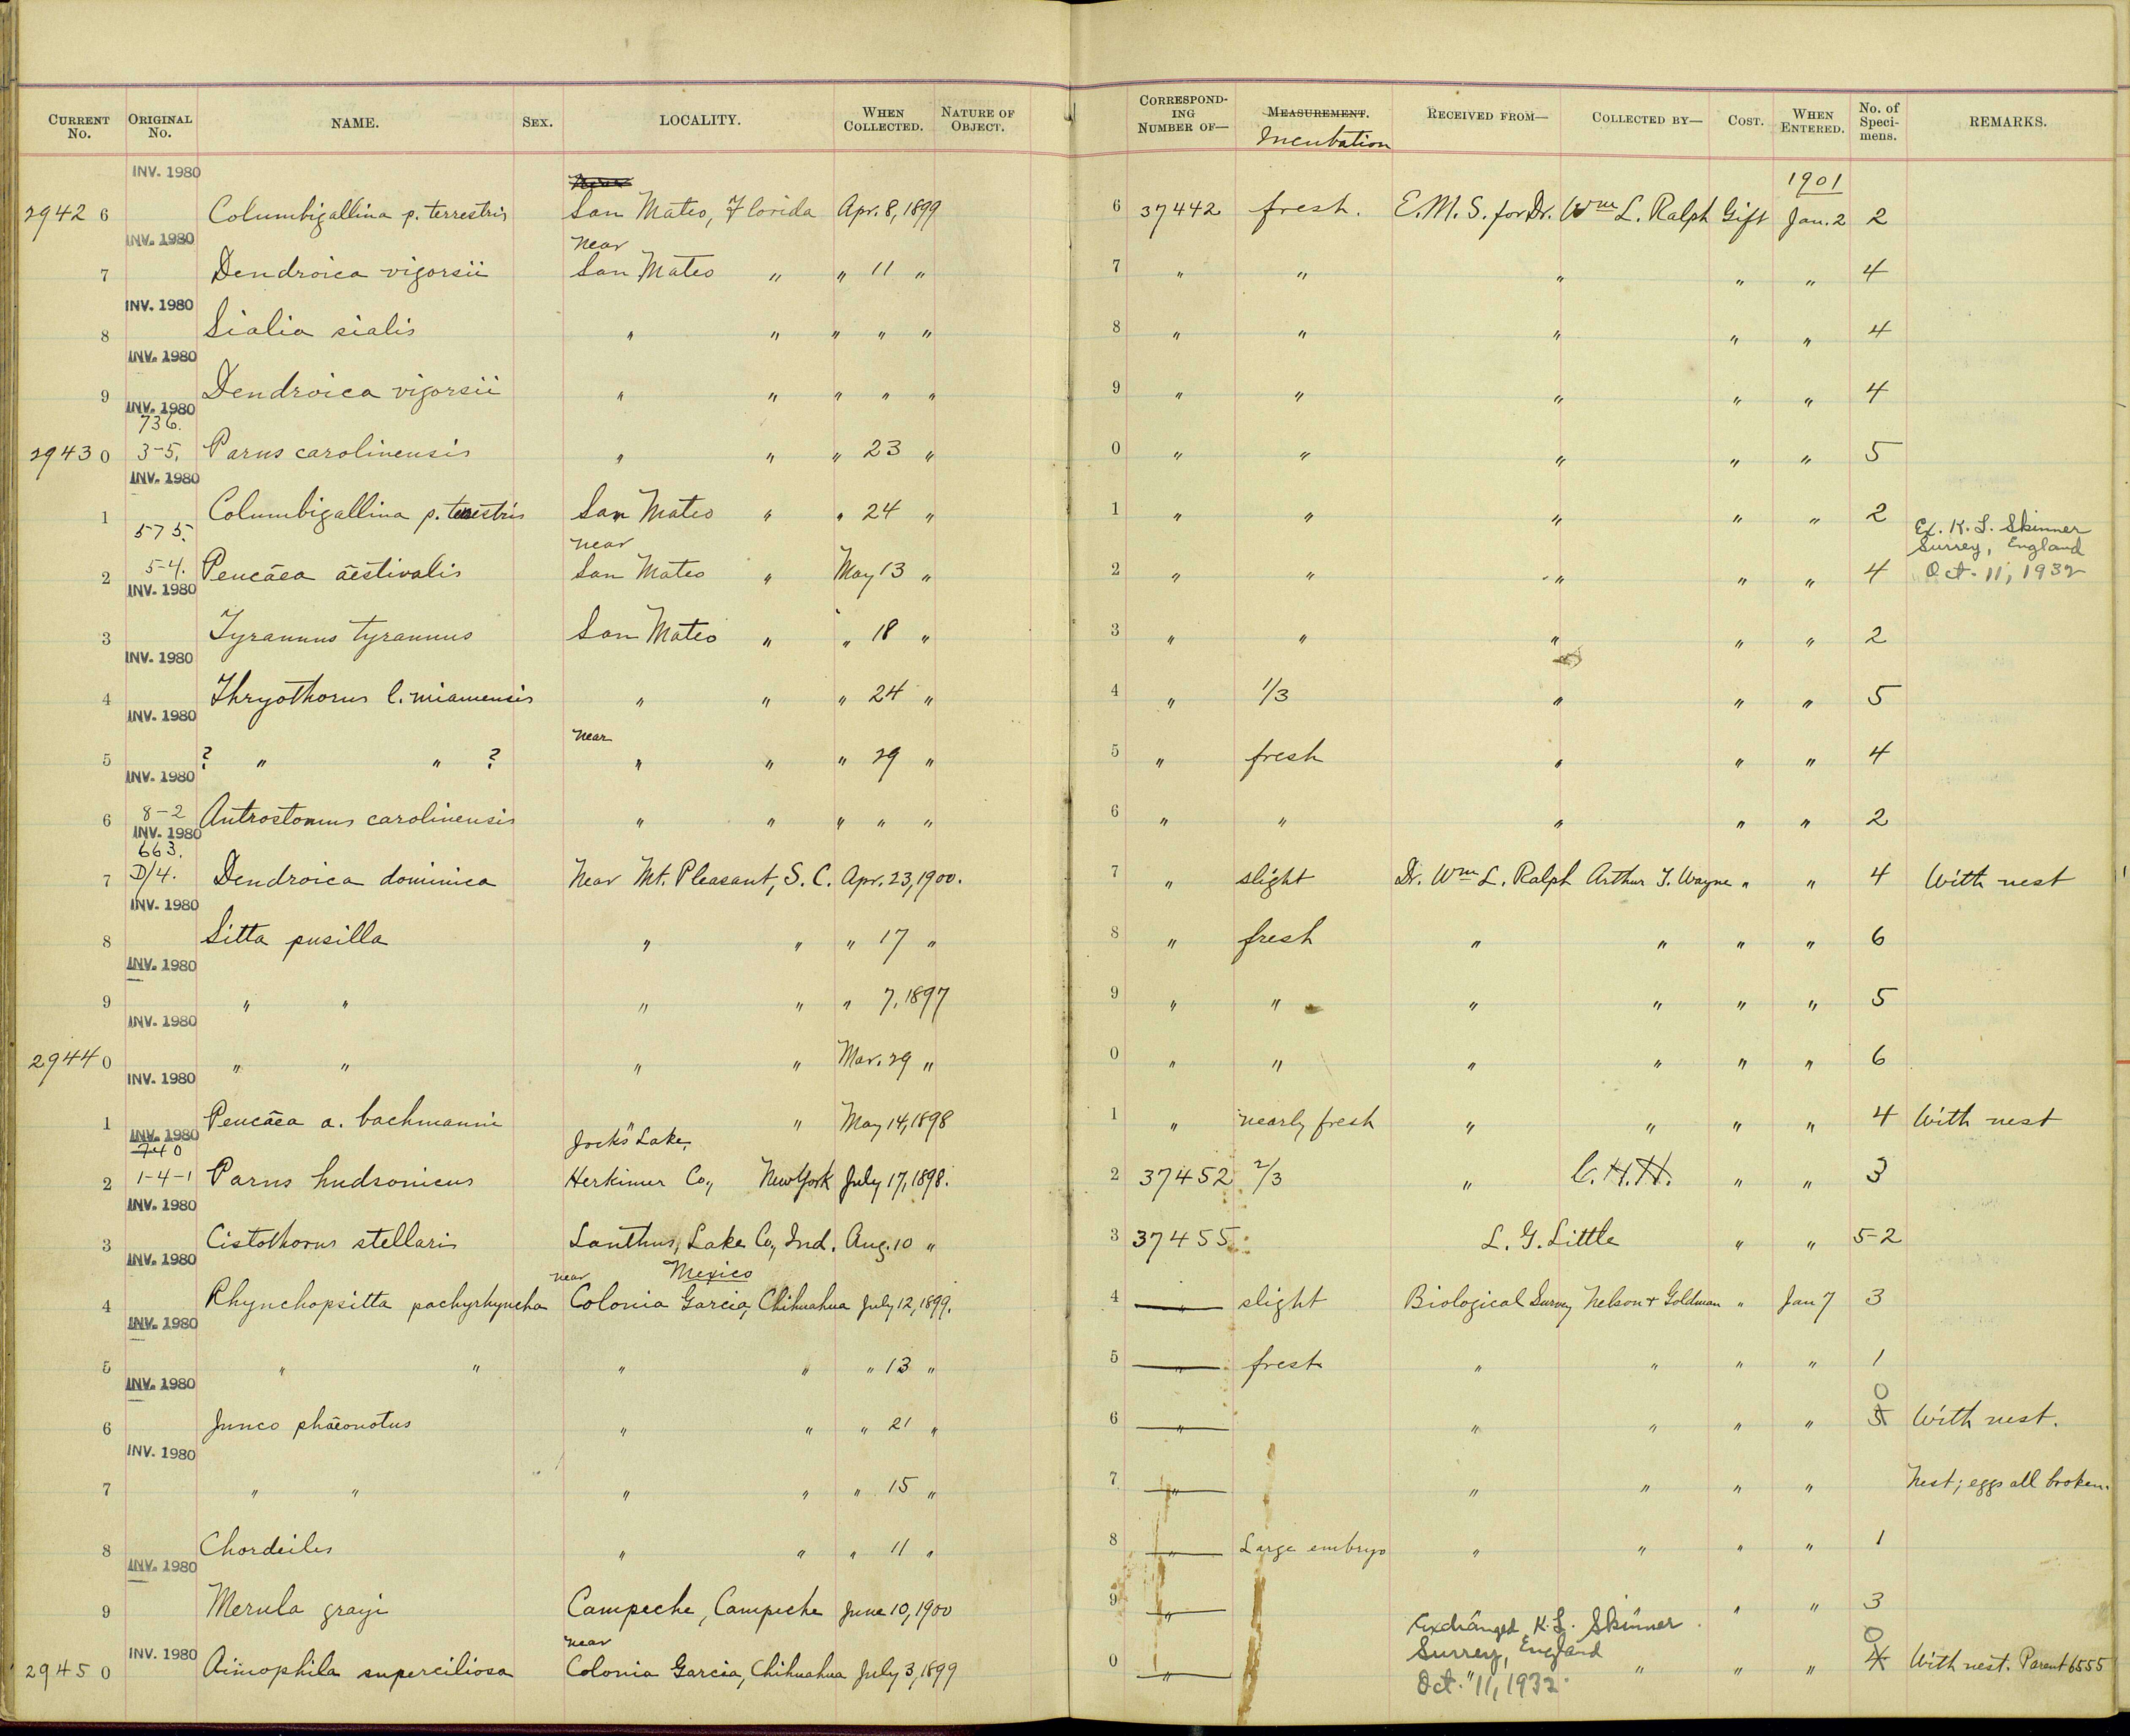 CURRENT No. ORIGINAL No. NAME. SEX. LOCALITY. WHEN COLLECTED. NATURE OF OBJECT. CORRESPONDING NUMBER OF— MEASUREMENT. RECEIVED FROM— COLLECTED BY— COST. WHEN ENTERED. No. of Specimens. REMARKS.
Incubation
INV. 1980 1901
29426 Columbigallina p. terrestris San Mateo, Florida Apr. 8, 1899 6 37442 fresh. E.M.S. for Dr. Wm L. Ralph Gift Jan. 2 2
INV. 1980 near
7 Dendroica vigorsii San Mateo " " 11 " 7 " " " " " 4
INV. 1980
8 Sialia sialis " " " " " 8 " " " " " 4
INV. 1980
9 Dendroica vigorsii " " " " " 9 " " " " " 4
INV. 1980
736.
29430 3-5. Parus carolinensis " " " 23 " 0 " " " " " 5
INV. 1980
1 Columbigallina p. terrestris San Mateo " " 24 " 1 " " " " " 2
575. near Ex. K. L. Skinner
Surrey, England
2 5-4. Peucäea äestivalis San Mateo " May 13 " 2 " " " " " 4 Oct. 11, 1932
INV. 1980
3 Tyrannus tyrannus San Mateo " " 18 " 3 " " " " " 2
INV. 1980
4 Thryothorus l. miamensis " " " 24 " 4 " 1/3 " " " 5
INV. 1980 near
5 ? " " ? " " " 29 " 5 " fresh " " " 4
INV. 1980
6 8-2 Antrostomus carolinensis " " " " " 6 " " " " " 2
INV. 1980
663.
7 D/4. Dendroica dominica Near Mt. Pleasant, S. C. Apr. 23, 1900. 7 " slight Dr. Wm L. Ralph Arthur T. Wayne " " 4 With nest
INV. 1980
8 Sitta pusilla " " " 17 " 8 " fresh " " " " 6
INV. 1980
9 " " " " " 7, 1897 9 " " " " " " 5
INV. 1980
29440 " " " " Mar. 29 " 0 " " " " " " 6
INV. 1980
1 Peucäea a. bachmanii " " May 14, 1898 1 " nearly fresh " " " " 4 With nest
INV. 1980 Jocks Lake,
740
2 1-4-1 Parus hudsonicus Herkimer Co., New York July 17, 1898. 2 37452 2/3 " C.H.H. " " 3
INV. 1980
3 Cistothorus stellaris Lanthus, Lake Co., Ind. Aug. 10 " 3 37455 L. G. Little " " 5-2
INV. 1980 near Mexico
4 Rhynchopsitta pachyrhyncha Colonia Garcia, Chihuahua July 12, 1899. 4 " slight Biological Survey Nelson + Goldman " Jan 7 3
INV. 1980
5 " " " " " 13 " 5 " fresh " " " " 1
INV. 1980 0
6 Junco phäeonotus " " " 21 " 6 " " " " " 5 With nest.
INV. 1980
7 " " " " " 15 " 7 " " " " " Nest; eggs all broken.
8 Chordeiles " " " 11 " 8 " Large embryo " " " " 1
INV. 1980
9 Merula grayi Campeche, Campeche June 10, 1900 9 " " " " " 3
near Exchanged K. L. Skinner 0
INV. 1980 Surrey, England
29450 Aimophila superciliosa Colonia Garcia, Chihuahua July 3, 1899 0 " " " " 4 With nest. Parent 6555
Oct. 11, 1932